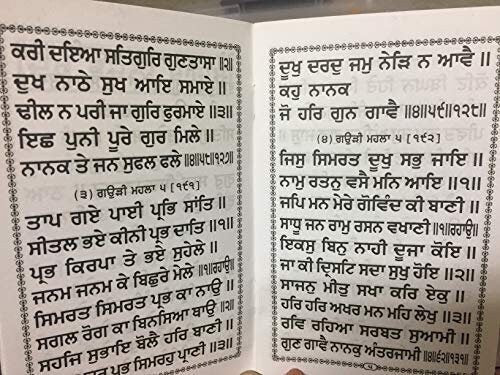 ਕਰੀ ਦਇਆ ਸਤਿਗੁਰਿ ਗੁਣਤਾਸਾ ॥੨॥
ਦੁਖ ਨਾਠੇ ਸੁਖ ਆਇ ਸਮਾਏ ॥
ਢੀਲ ਨ ਪਰੀ ਜਾ ਗੁਰਿ ਫੁਰਮਾਏ ॥੩॥
ਇਛ ਪੁਨੀ ਪੂਰੇ ਗੁਰ ਮਿਲੇ ॥
ਨਾਨਕ ਤੇ ਜਨ ਸੁਫਲ ਫਲੇ ॥੪॥੫੮॥੧੨੭॥
(੩) ਗਉੜੀ ਮਹਲਾ ੫ [੧੯੧]
ਤਾਪ ਗਏ ਪਾਈ ਪ੍ਰਭਿ ਸਾਂਤਿ ॥
ਸੀਤਲ ਭਏ ਕੀਨੀ ਪ੍ਰਭ ਦਾਤਿ ॥੧॥
ਪ੍ਰਭ ਕਿਰਪਾ ਤੇ ਭਏ ਸੁਹੇਲੇ ॥
ਜਨਮ ਜਨਮ ਕੇ ਬਿਛੁਰੇ ਮੇਲੇ ॥੧॥ਰਹਾਉ॥
ਸਿਮਰਤ ਸਿਮਰਤ ਪ੍ਰਭ ਕਾ ਨਾਉ ॥
ਸਗਲ ਰੋਗ ਕਾ ਬਿਨਸਿਆ ਥਾਉ ॥੨॥
ਸਹਜਿ ਸੁਭਾਇ ਬੋਲੈ ਹਰਿ ਬਾਣੀ ॥
ਪ੍ਰਭ ਸਿਮਰਹੁ ਪ੍ਰਾਣੀ ॥੩॥
ਦੂਖੁ ਦਰਦੁ ਜਮੁ ਨੇੜਿ ਨ ਆਵੈ ॥
ਕਹੁ ਨਾਨਕ
ਜੋ ਹਰਿ ਗੁਨ ਗਾਵੈ ॥੪॥੫੯॥੧੨੮॥
(੪) ਗਉੜੀ ਮਹਲਾ ੫ [੧੯੨]
ਜਿਸੁ ਸਿਮਰਤ ਦੂਖੁ ਸਭੁ ਜਾਇ ॥
ਨਾਮੁ ਰਤਨੁ ਵਸੈ ਮਨਿ ਆਇ ॥੧॥
ਜਪਿ ਮਨ ਮੇਰੇ ਗੋਵਿੰਦ ਕੀ ਬਾਣੀ ॥
ਸਾਧੂ ਜਨ ਰਾਮੁ ਰਸਨ ਵਖਾਣੀ ॥੧॥ਰਹਾਉ॥
ਇਕਸੁ ਬਿਨੁ ਨਾਹੀ ਦੂਜਾ ਕੋਇ ॥
ਜਾ ਕੀ ਦ੍ਰਿਸਟਿ ਸਦਾ ਸੁਖੁ ਹੋਇ ॥੨॥
ਸਾਜਨੁ ਮੀਤੁ ਸਖਾ ਕਰਿ ਏਕੁ ॥
ਹਰਿ ਹਰਿ ਅਖਰ ਮਨ ਮਹਿ ਲੇਖੁ ॥੩॥
ਰਵਿ ਰਹਿਆ ਸਰਬਤ ਸੁਆਮੀ ॥
ਗੁਣ ਗਾਵੈ ਨਾਨਕੁ ਅੰਤਰਜਾਮੀ ॥੪॥੬੨॥੧੩੧॥